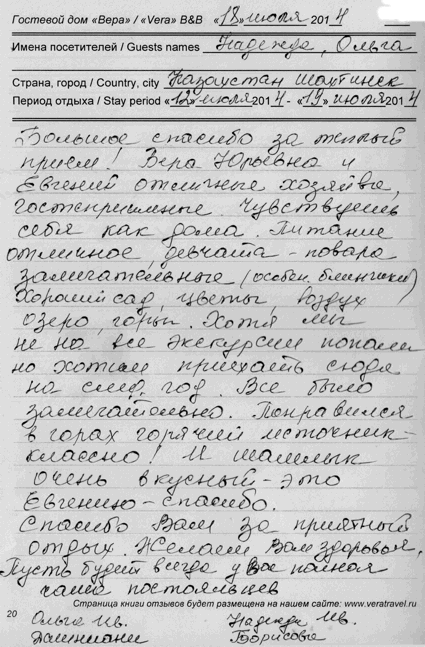 Гостевой дом «Вера» / «Vera» B&B «18» июля 2014
Имена посетителей / Guests names Надежда, Ольга
Страна, город / Country, city Казахстан Шахтинск
Период отдыха / Stay period «12» июля 2014 - «19» июля 2014
Большое спасибо за теплый
прием! Вера Юрьевна и
Евгений отличные хозяйва,
гостеприимные. Чувствуешь
себя как дома. Питание
отличное, девчата - повара
замечательные (особен. блинчики)
Хороший сад, цветы, воздух,
озеро, горы. Хотя мы
не на все экскурсии попали
но хотим приехать сюда
на след. год. Все было
замечательно. Понравился
в горах горячий источник -
классно! И шашлык
очень вкусный - это
Евгению - спасибо.
Спасибо Вам за приятный
отдых. Желаем Вам здоровья,
Пусть будет всегда у Вас полная
чаша постояльцев
Страница книги отзывов будет размещена на нашем сайте: www.veratravel.ru
20 Ольга Ив. Надежда Ив.
Борисовы